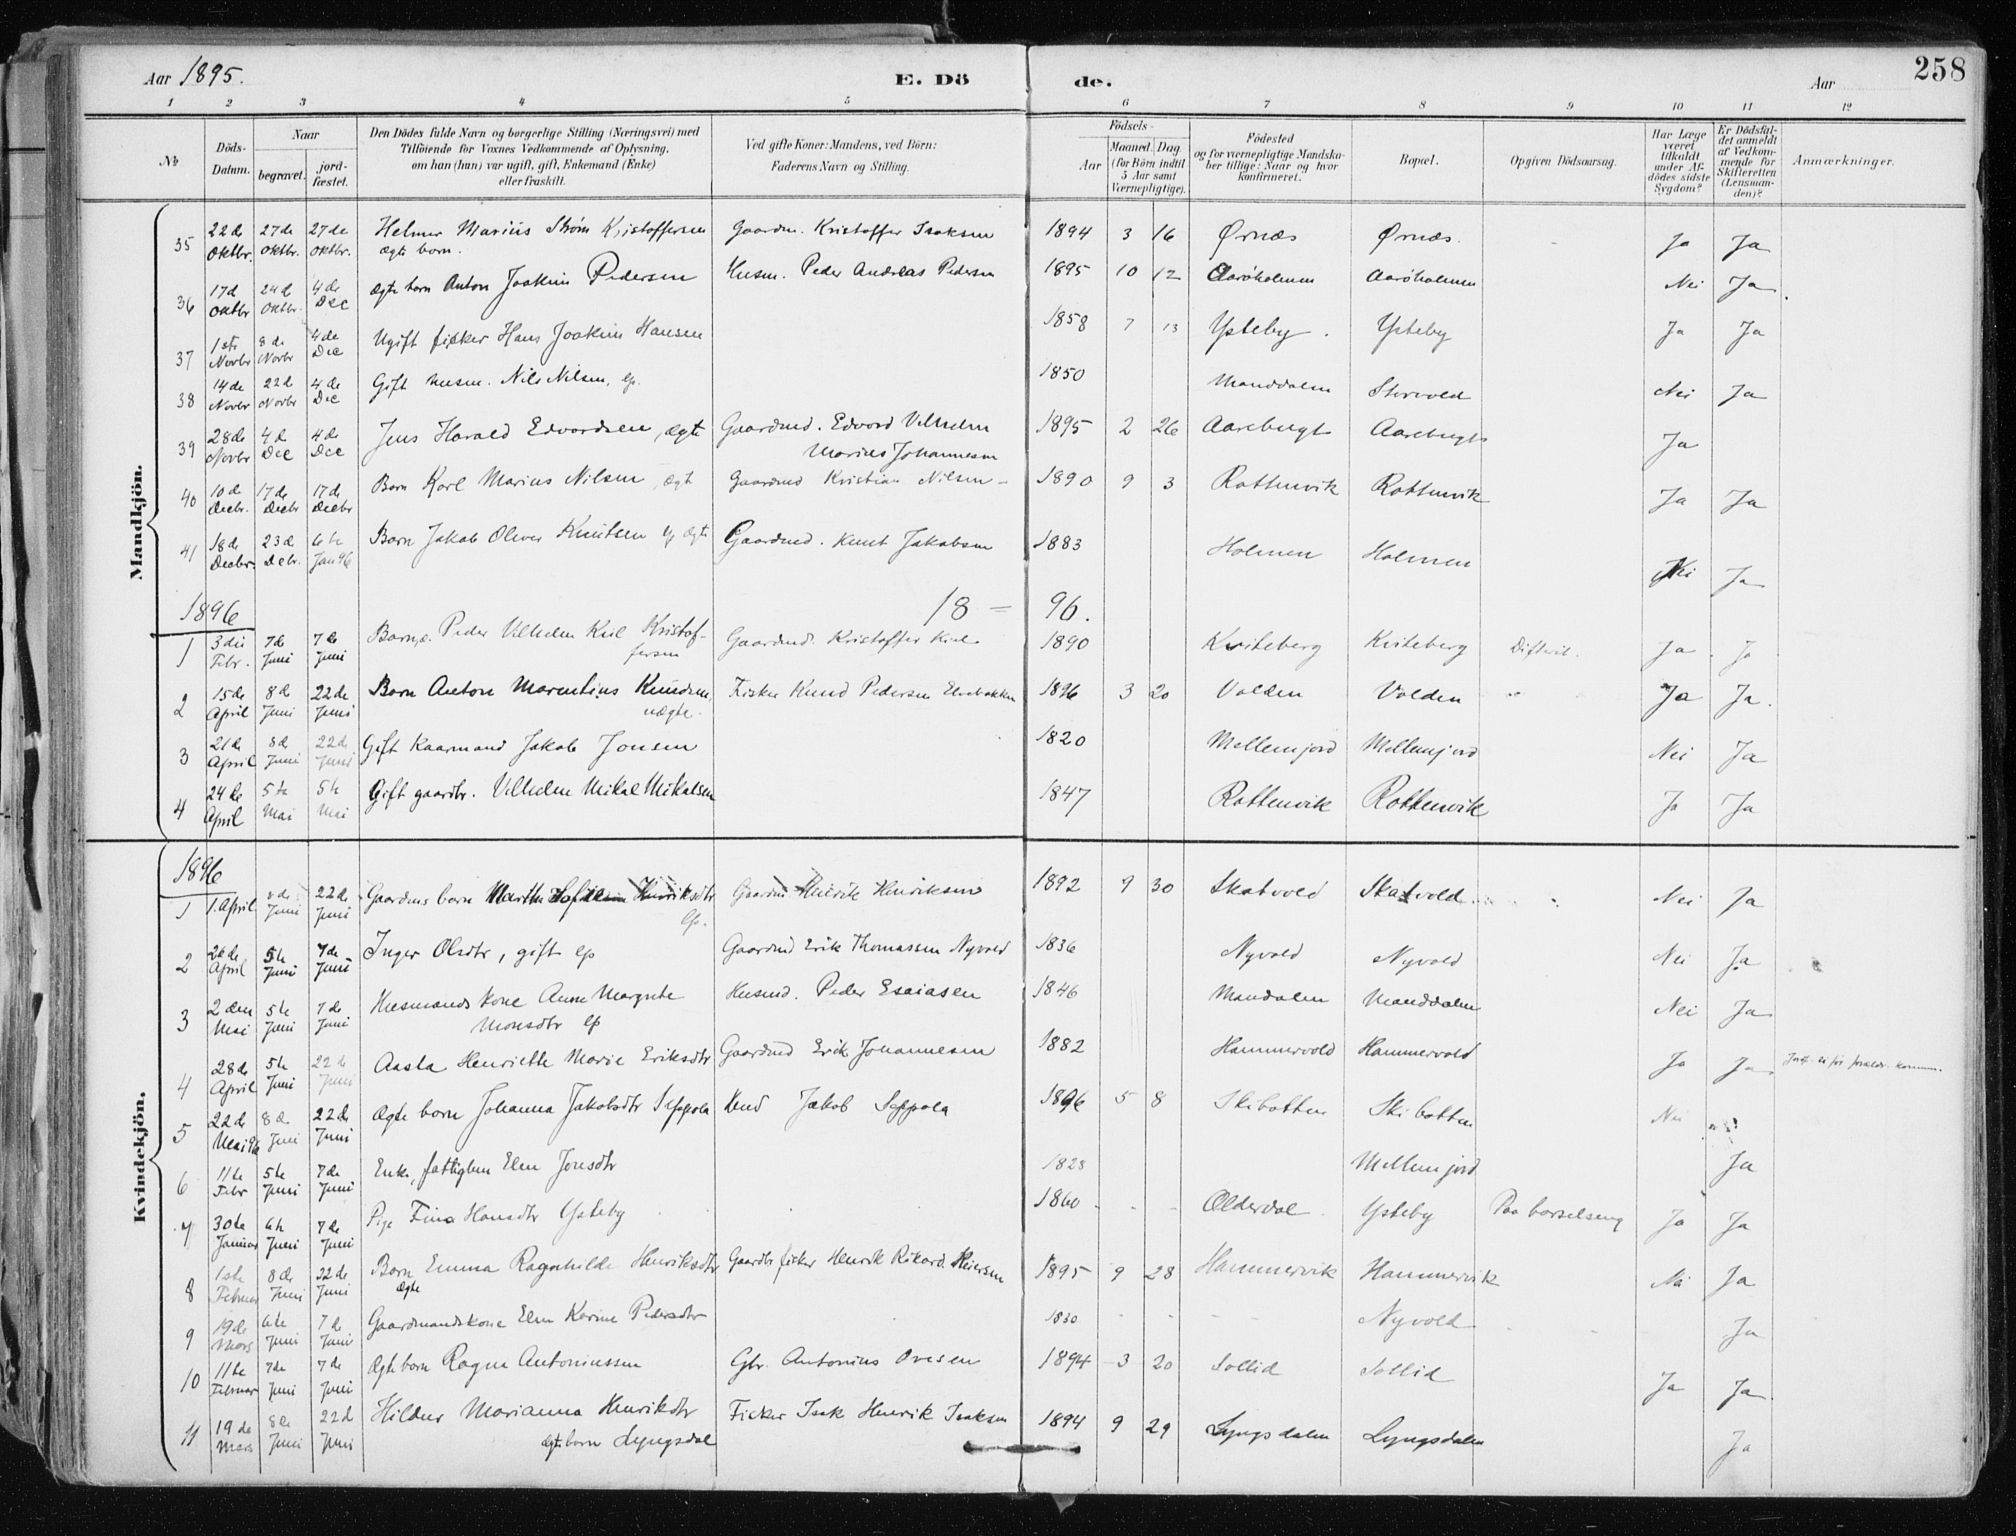 Aar 1895. E. Dö de. Aar 258
1 2 3 4 5 6 7 8 9 10 11 12
№
Döds-Datum.
Naar
begravet.
jord-fæstet.
Den Dödes fulde Navn og borgerlige Stilling (Næringsvei) med
Tilföiende for Voxnes Vedkommende af Oplysning,
om han (hun) var ugift, gift, Enkemand (Enke)
eller fraskilt.
Ved gifte Koner: Mandens, ved Börn:
Faderens Navn og Stilling.
Födsels-
Aar
Maaned. Dag
(for Börn indtil
5 Aar samt
Værnepligtige).
Födested
og for værnepligtige Mandska-
ber tillige: Naar og hvor
konfirmeret.
Bopæl.
Opgiven Dödsaarsag.
Har Læge
været
tilkaldt
under Af-
dödes sidste
Sygdom?
Er Dödsfal-
det anmeldt
af Vedkom-
mende for
Skifteretten
(Lensman-
den)?
Anmærkninger.
Mandkjön.
35 22de Oktbr. 27de Oktbr. 27de Oktbr. Helmer Marius Strøm Kristoffersen ægte barn. Gaardm. Kristoffer Isaksen 1894 3 16 Ørnæs Ørnæs. Ja Ja
36 17d Oktbr 24d Oktbr. 4de Dec ægte barn Anton Joakim Pedersen Husm. Peder Andreas Pedersen 1895 10 12 Aarøholmen Aarøholmen Nei Ja.
37 1ste Novbr 8de Novbr 4de Dec Ugift fisker Hans Joakim Hansen 1858 7 13 Ysteby. Ysteby Ja Ja
38 14de Novbr 22d Novbr 4de Dec Gift husm. Nils Nilsen, lp. 1850 Manddalen Storvold Nei Ja
39 28de Novbr 4d Dec 4de Dec Jens Harald Edvardsen, ægte Gaardmd. Edvard Vilhelm Marius Johannesen 1895 2 26 Aarebugt Aarebugt Ja
40 10de Decbr. 17de Decbr 17de Decbr Barn Karl Marius Nilsen, ægt Gaardmd Kristian Nilsen 1890 9 3 Rottenvik Rottenvik Ja Ja
41 18de Decbr. 23d Debr. 6te Jan 96 Barn Jakob Oliver Knutsen lp ægte Gaardmd. Knut Jakobsen 1883 Holmen Holmen Nei Ja
1896 18 = 96.
1 3die Febr. 7de Juni 7de Juni Barn, æ. Peder Vilhelm Kiil Kristoffersen Gaardmd. Kristoffer Kiil 1890 Kviteberg Kviteberg Difterit. Ja Ja
2 15de April 8de Juni 22de Juni Barn Anton Marentius Knudsen, uægte. Fisker Knud Pedersen Elvebakken 1896 3 20 Volden Volden Ja Ja.
3 21de April 8d Juni 22de Juni Gift Kaarmand Jakob Jonsen 1820 Mellemjord Mellemjord Nei Ja
4 24de April 5te Mai 5te Mai Gift gaardbr. Vilhelm Mikal Mikalsen 1847 Rottenvik Rottenvik Ja Ja
Kvindekjön.
1896
1 1. April 8de Juni 22de Juni Gaardms barn Henriksdtr lp. Gaardmd Henrik Henriksen 1892 9 30 Skatvold Skatvold. Nei Ja
2 26de April 5te Juni 7de Juni Inger Olsdtr, gift lp Gaardmd Erik Thomassen Nyvold 1836 Nyvold Nyvold Nei Ja
3 2den Mai 5te Juni 7de Juni Husmands kone Anne Margrete Monsdtr lp Husmd. Peder Esaiasen 1846 Mandalen Manddalen Nei Ja
4 28de April 5te Juni 22de Juni Aasta Henriette Marie Eriksdtr Gaardmd Erik Johannesen 1882 Hammervold Hammervold Ja Ja
5 22de Mai 96 8de Juni 22de Juni Ægte barn Johanna Jakobsdtr Seppola Kvd Jakob Seppola 1896 5 8 Skibotten Skibotten Nei
6 11te Febr 5te Juni 7de Juni Enke, fattiglem Elen Jonsdtr 1828 Mellemjord Ja
7 30te Januar 6te Juni 7de Juni Pige Fina Hansdtr Ysteby 1860 Olderdal Ysteby Paa barselseng Ja Ja
8 1ste Februar 8de Juni 22de Juni Barn Emma Ragnhilde Henriksdtr ægte Gaardbr fisker Henrik Rikard Heiersen 1895 9 28 Hammervik Hammervik Nei Ja
9 19de Mars 6te Juni 7de Juni Gaardmandskone Elen Karine Pedersdtr 1830 Nyvold Ja
10 11te Februar 7de Juni 7de Juni Ægte barn Ragna Antoniussen Gbr. Antonius Ovesen 1894 3 20 Sollid Sollid Ja Ja
11 19de Mars 8de Juni 22d Juni Hildur Marianna Henriksdtr ægte barn Lyngsdal Fisker Isak Henrik Isaksen 1894 9 29 Lyngsdalen Lyngsdalen Ja